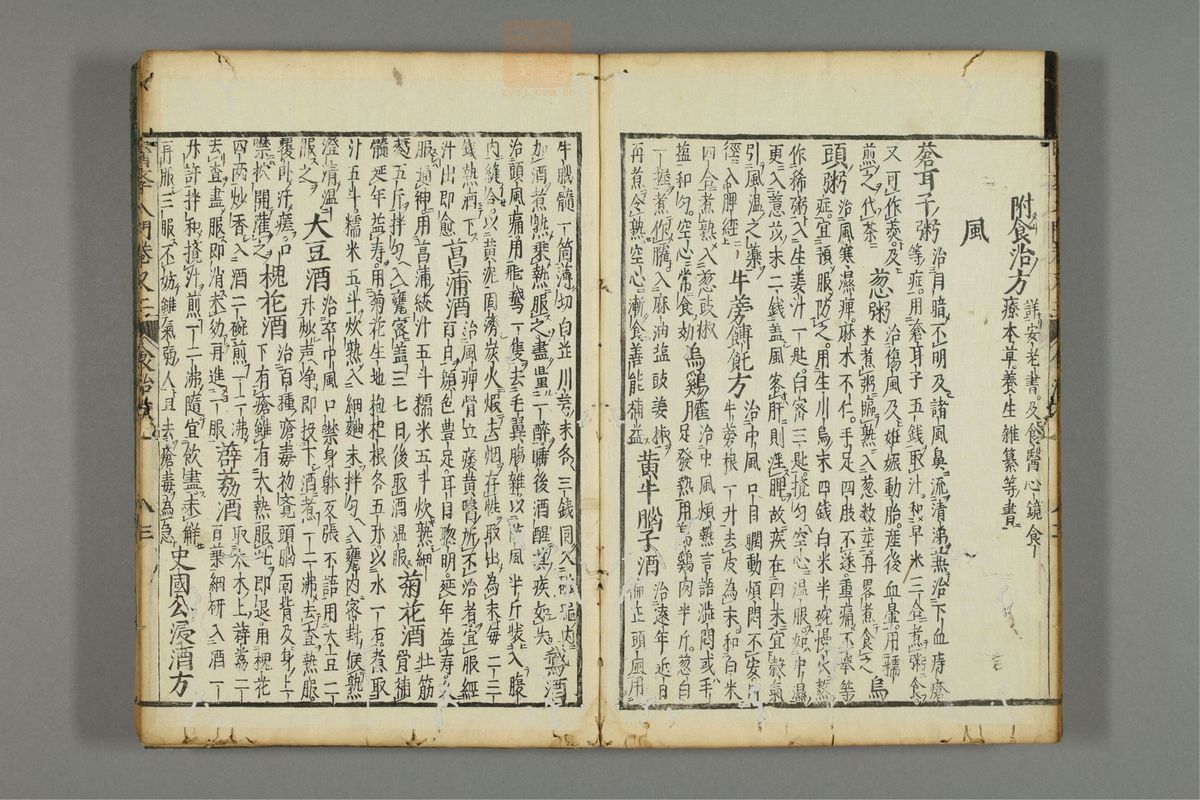 附食治方 詳安老書及食醫心鏡食
療本草養生雜纂等書
風
蒼耳子粥 治目暗不明及諸風鼻流清涕兼治下血痔瘡
等症用蒼耳子五錢取汁和早米三合煮粥食
又可作羹及
煎湯代茶 葱粥 治傷風及妊娠動胎產後血暈用糯
米煮粥臨熟入葱數莖再畧煮食之 烏
頭粥 治風寒濕痺麻木不仁手足四肢不遂重痛不舉等
症宜預服防之用生川烏末四錢白米半碗慢火熬
作稀粥入生姜汁一匙白蜜三匙攪勻空心溫服如中濕
更入薏苡末二錢盖風客肝則淫脾故疾在四末宜穀氣
引風溫之藥
徑入脾經 牛蒡餺飥方 治中風口目瞤動煩悶不安
牛蒡根一升去皮為末和白米
四合煮熟入葱豉椒
塩和勻空心常食効 烏鷄臛 治中風煩熱言語澁悶或手
足發熱用烏鷄肉半斤葱白
一握煮作臛入麻油塩豉姜椒
再煮令熟空心漸食善能補益 黄牛脳子酒 治遠年近日
偏正頭風用
牛腦髓一箇薄切白芷川芎末各三錢同入
加酒煮熟乘熱服之盡量一醉睡後酒醒其疾如失 鵝酒
治頭風痛用飛鵝一隻去毛翼腸雜以風半斤裝入腹
内縫合以黄泥固濟炭火煅去烟存性取出為末每二三
錢熱酒下
汁出即愈 菖蒲酒 治風痺骨立痿黄醫所不治者宜服經
百日顔色豊足耳目聰明延年益壽久
服通神用菖蒲絞汁五斗糯米五斗炊熟細
麯五斤拌勻入甕密盖三七日後取酒溫服 菊花酒 壮筋
骨補
髓延年益壽用菊花生地枸杞根各五升以水一石煮取
汁五斗糯米五斗炊熟入細麯末拌勻入甕内密封候熟
澄清溫
服之 大豆酒 治卒中風口噤身與反張不語用大豆二
升炒声净即投下酒煮一二沸去查熱服
覆卧汗瘥口
噤拗開灌之 槐花酒 治百種瘡毒初覺頭腦面背及身上
下有瘡雖有大熱服此即退用槐花
四両炒香入酒二碗煎一二沸
去查盡服即消未効再進一服 薜荔酒 取木上薜荔二
百葉細研入酒一
升許拌和攪汁煎一二沸隨宜飲盡未解
再服三服不妨雖氣弱人且去瘡毒為急 史國公浸酒方